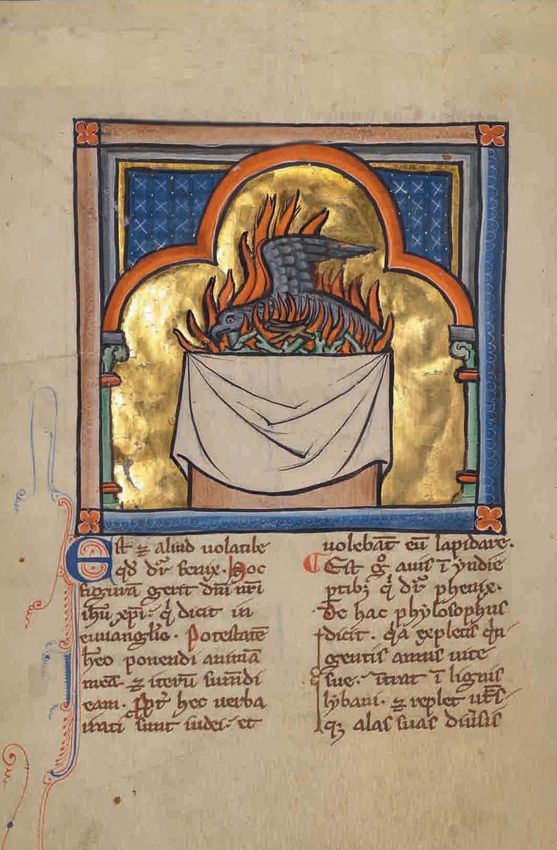 Est ⁊ aliud uolatile
qd̄ dr̄ fenix. hoc
figurā gerit dn̄i nr̄i
ihū xp̄i. q̄ dicit in
euuanglio. Potestatē
h̄eo ponendi animā
meā. ⁊ iterū sumēdi
eam. ꝓpt̄ hec uerba
irati sunt iudei. et
uolebāt eū lapidare.
Est gͦ auis ī yndie
ptibꝫ q̄ dr̄ phenix.
De hac phylosophus
dicit. qͥa expletis qͥn
gentis annis uite
sue. ītrat ī lignis
lybani. ⁊ replet ut̄s
qꝫ alas suas diuͥsis